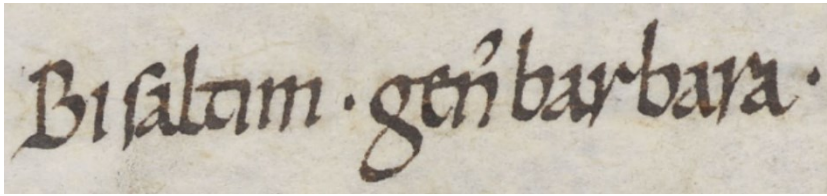 Biſaltim · geñ barbara ·